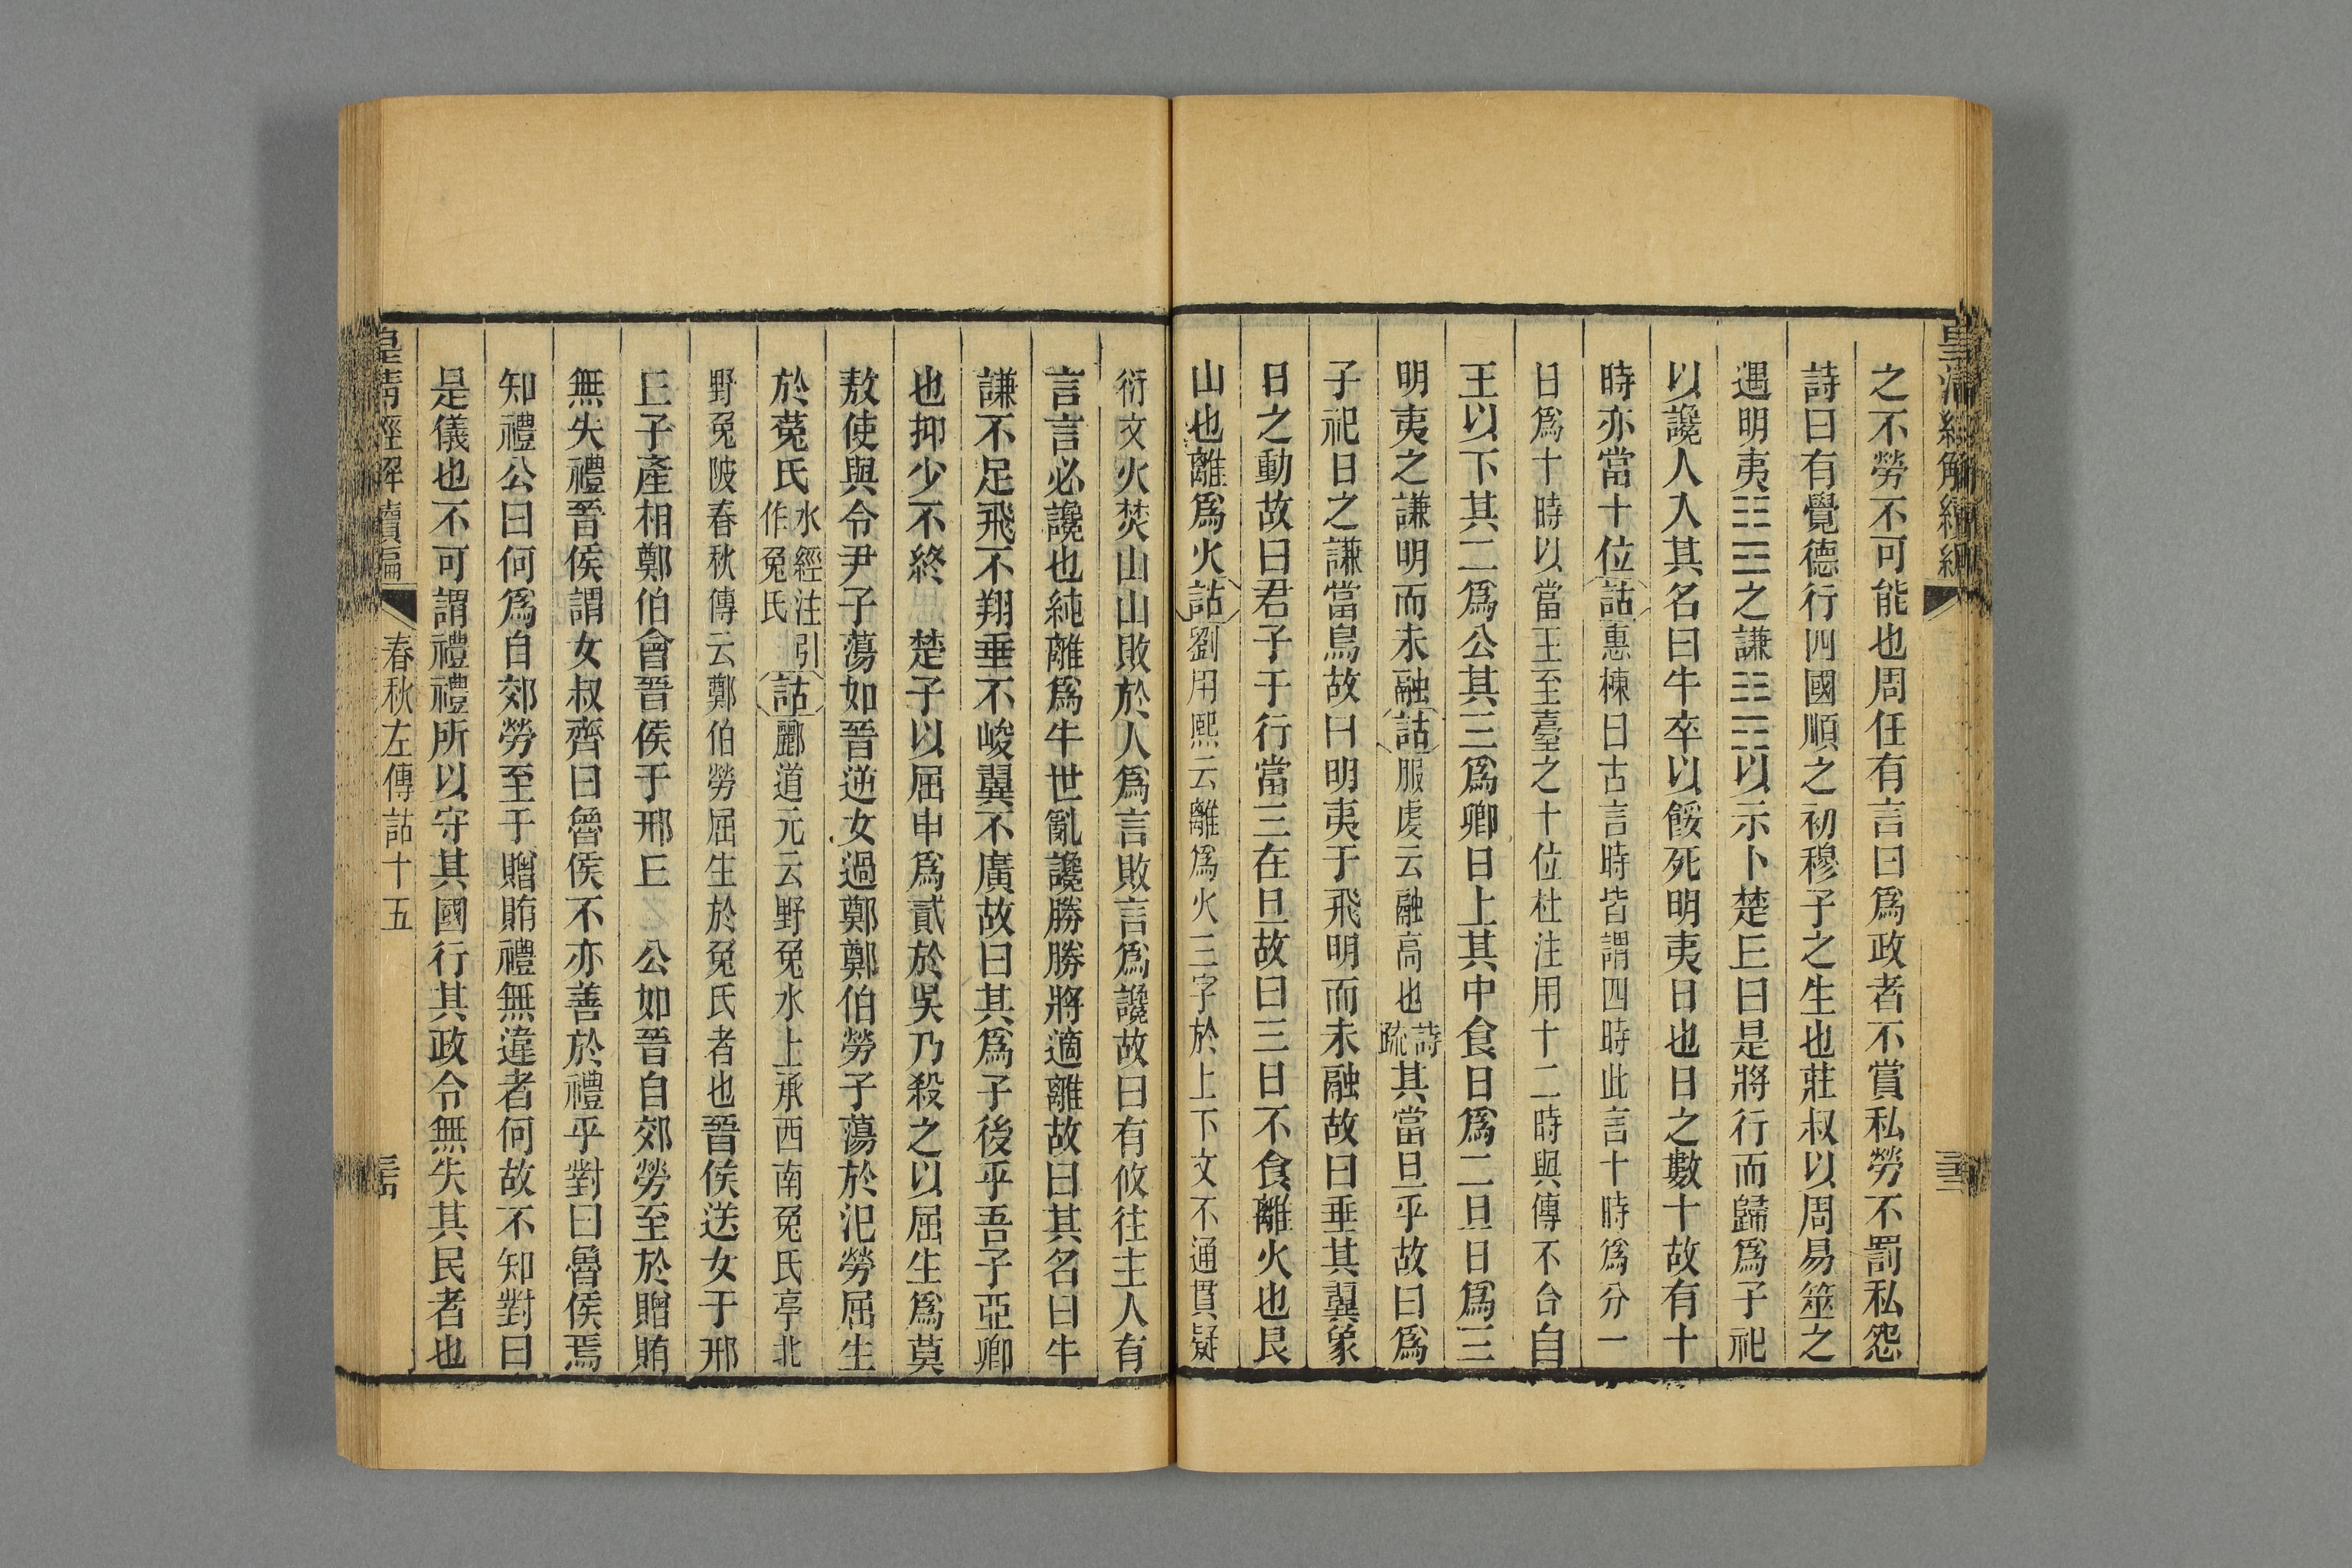 皇清經解續編
之不勞不可能也周任有言曰爲政者不賞私勞不罰私怨
詩曰有覺德行四國順之初穆子之生也莊叔以周易筮之
遇明夷䷣之謙䷎以示卜楚𠀉曰是將行而歸爲子祀
以讒人入其名曰牛卒以餒死明夷日也日之數十故有十
時亦當十位詁惠棟曰古言時皆謂四時此言十時爲分一
日爲十時以當王至臺之十位杜注用十二時與傳不合自
王以下其二爲公其三爲卿日上其中食日爲二旦日爲三
明夷之謙明而未融詁服虔云融高也詩疏其當旦乎故曰爲
子祀日之謙當鳥故曰明夷于飛明而未融故曰垂其翼象
日之動故曰君子于行當三在旦故曰三日不食離火也艮
山也離爲火詁劉用熙云離爲火三字於上下文不通貫疑
衍文火焚山山敗於人爲言敗言爲讒故曰有攸往主人有
言言必讒也純離爲牛世亂讒勝勝將適離故曰其名曰牛
謙不足飛不翔垂不峻翼不廣故曰其爲子後乎吾子亞卿
也抑少不終 楚子以屈申爲貳於吳乃殺之以屈生爲莫
敖使與令尹子蕩如晉逆女過鄭鄭伯勞子蕩於汜勞屈生
於菟氏水經注引作兔氏詁酈道元云野兔水上承西南兔氏亭北
野兔陂春秋傳云鄭伯勞屈生於兔氏者也晉侯送女于邢
𠀉子產相鄭伯會晉侯于邢𠀉 公如晉自郊勞至於贈賄
無失禮晉侯謂女叔齊曰魯侯不亦善於禮乎對曰魯侯焉
知禮公曰何爲自郊勞至于贈賄禮無違者何故不知對曰
是儀也不可謂禮禮所以守其國行其政令無失其民者也
皇清經解續編
春秋左傳詁十五